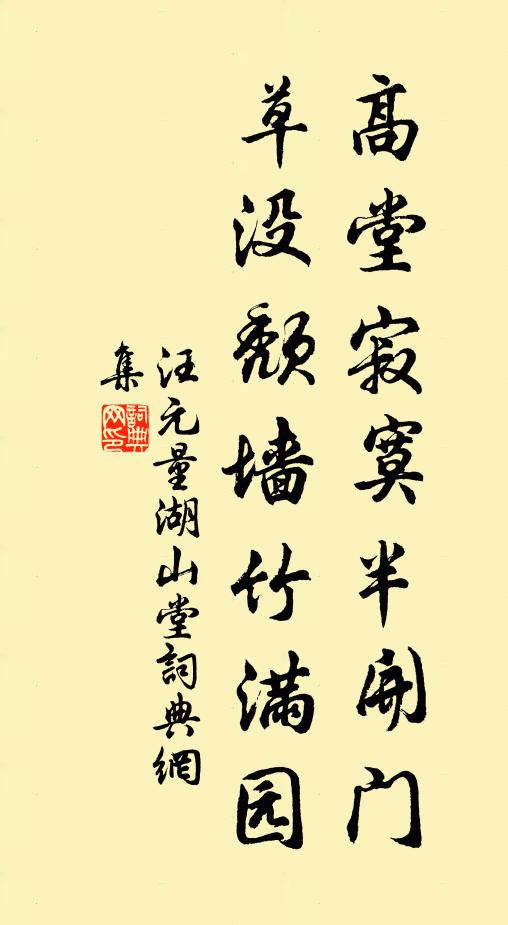 高堂寂寞半開门
草没颓墙竹满园
汪元量湖山堂詞典網
集
詞典网印